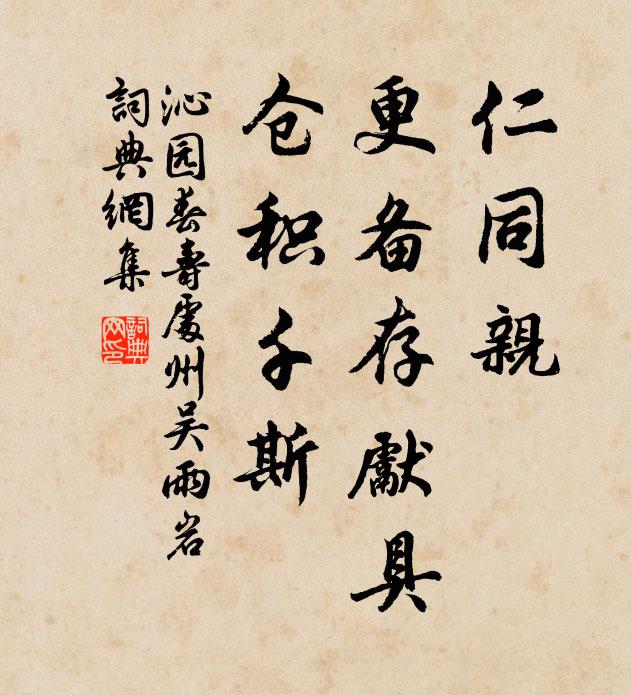 仁同親
更备存獻具
仓积千斯
沁园春壽處州吴雨岩
詞典網集
詞典網印